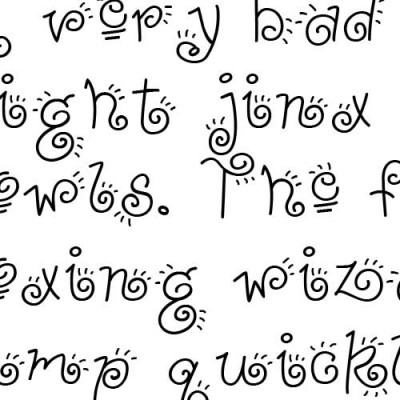 very bad
ight jinx
owls. The f
oxing wiza
ump quickl